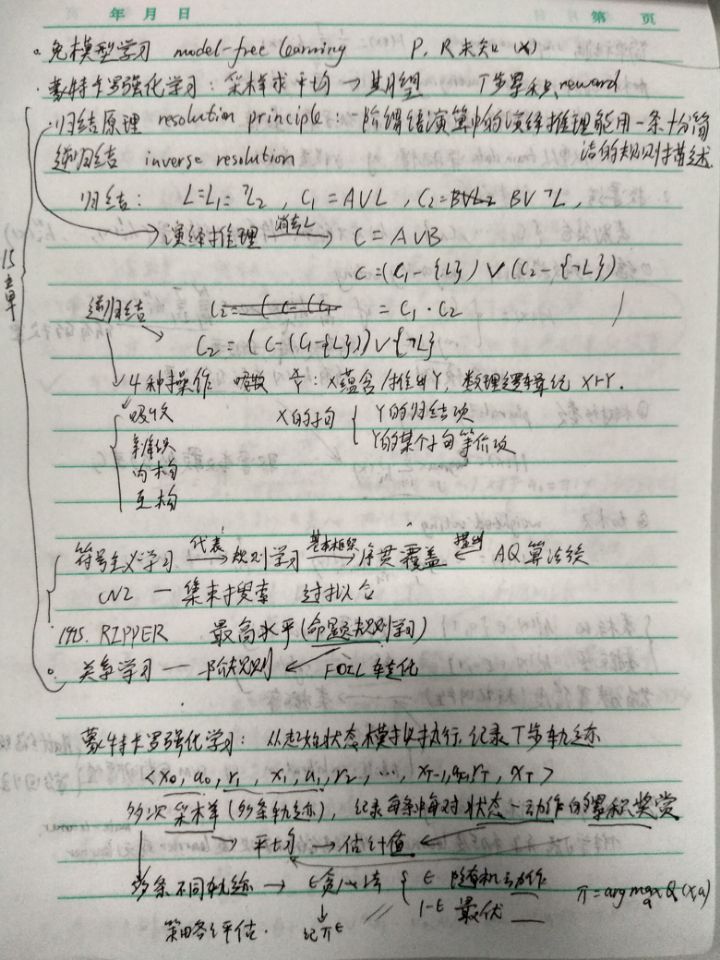 年 月 日 第 页
免模型学习 model-free learning P, R未知 (x)
蒙特卡罗强化学习：采样求平均 → 期望 T步累积reward
归结原理 resolution principle：一阶谓词演算中的演绎推理能用一条十分简
洁的规则描述.
逆归结 inverse resolution
归结： L=L₁=¬L₂, C₁=A∨L, C₂=B∨L₂ B∨¬L,
→ 演绎推理 消去L → C=A∨B
C=(C₁-{L})∨(C₂-{¬L})
15章
逆归结 = C₁·C₂
C₂=(C-(C₁-{L}))∨{¬L}
4种操作 吸收 X蕴含/推出Y, 数理逻辑 X⊢Y.
吸收
辨识
内构
互构
X的句 { Y的归结项
Y的某个句等价项
符号主义学习 代表→ 规则学习 基本框架→ 序贯覆盖 ← 提出 AQ算法族
CN2 — 集束搜索 过拟合
1995. RIPPER 最高水平(命题规则学习)
关系学习 — 一阶规则 ← FOIL
蒙特卡罗强化学习： 从起始状态模拟执行, 记录T步轨迹
<x₀, a₀, r₁, x₁, a₁, r₂, …, x_T-1, a_T-1, r_T, x_T>
多次采样(多条轨迹), 记录每条中每对状态-动作的累积奖赏
→ 平均 → 估计值
多条不同轨迹 → ε贪心法 { ε 随机动作
1-ε 最优
π=argmax_a Q(x,a)
策略评估. 记π^ε